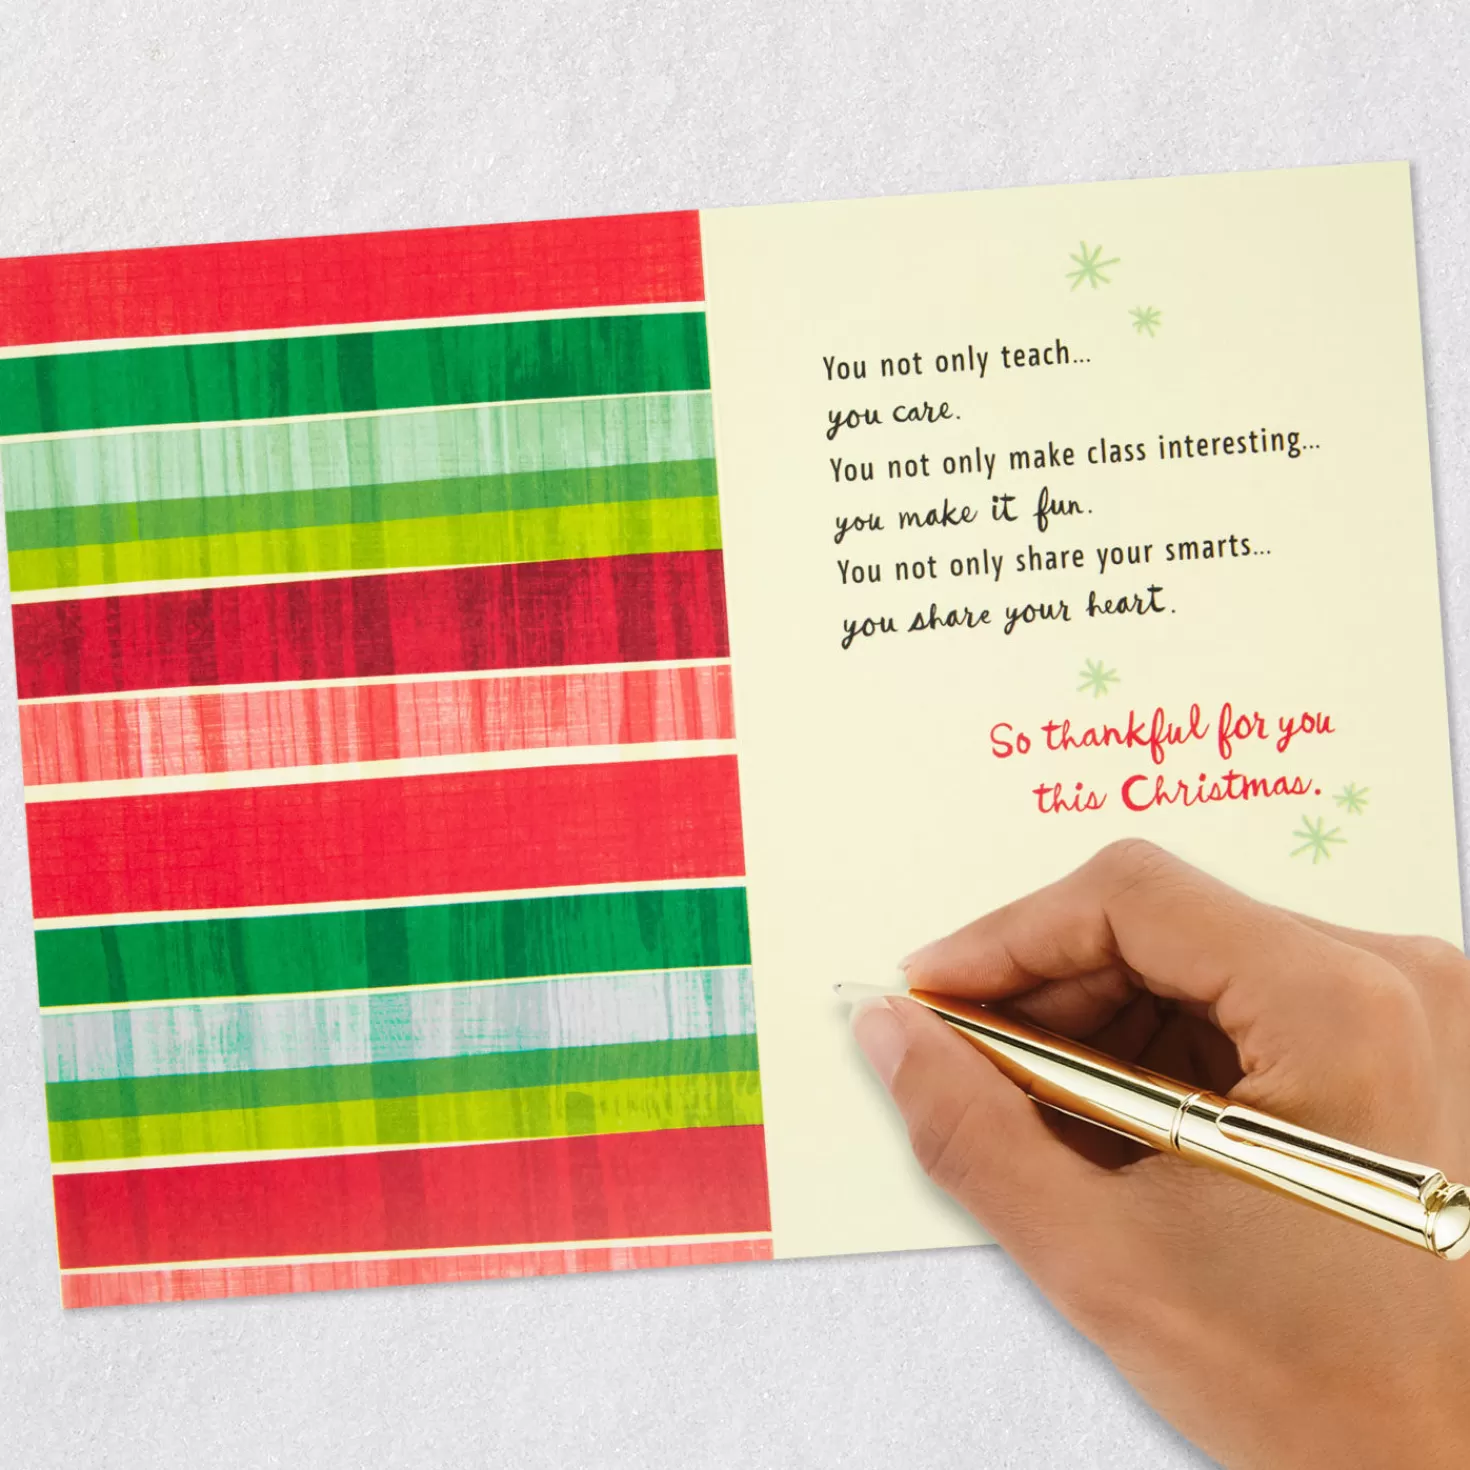 You not only teach...
you care.
You not only make class interesting...
you make it fun.
You not only share your smarts...
you share your heart.
So thankful for you
this Christmas.